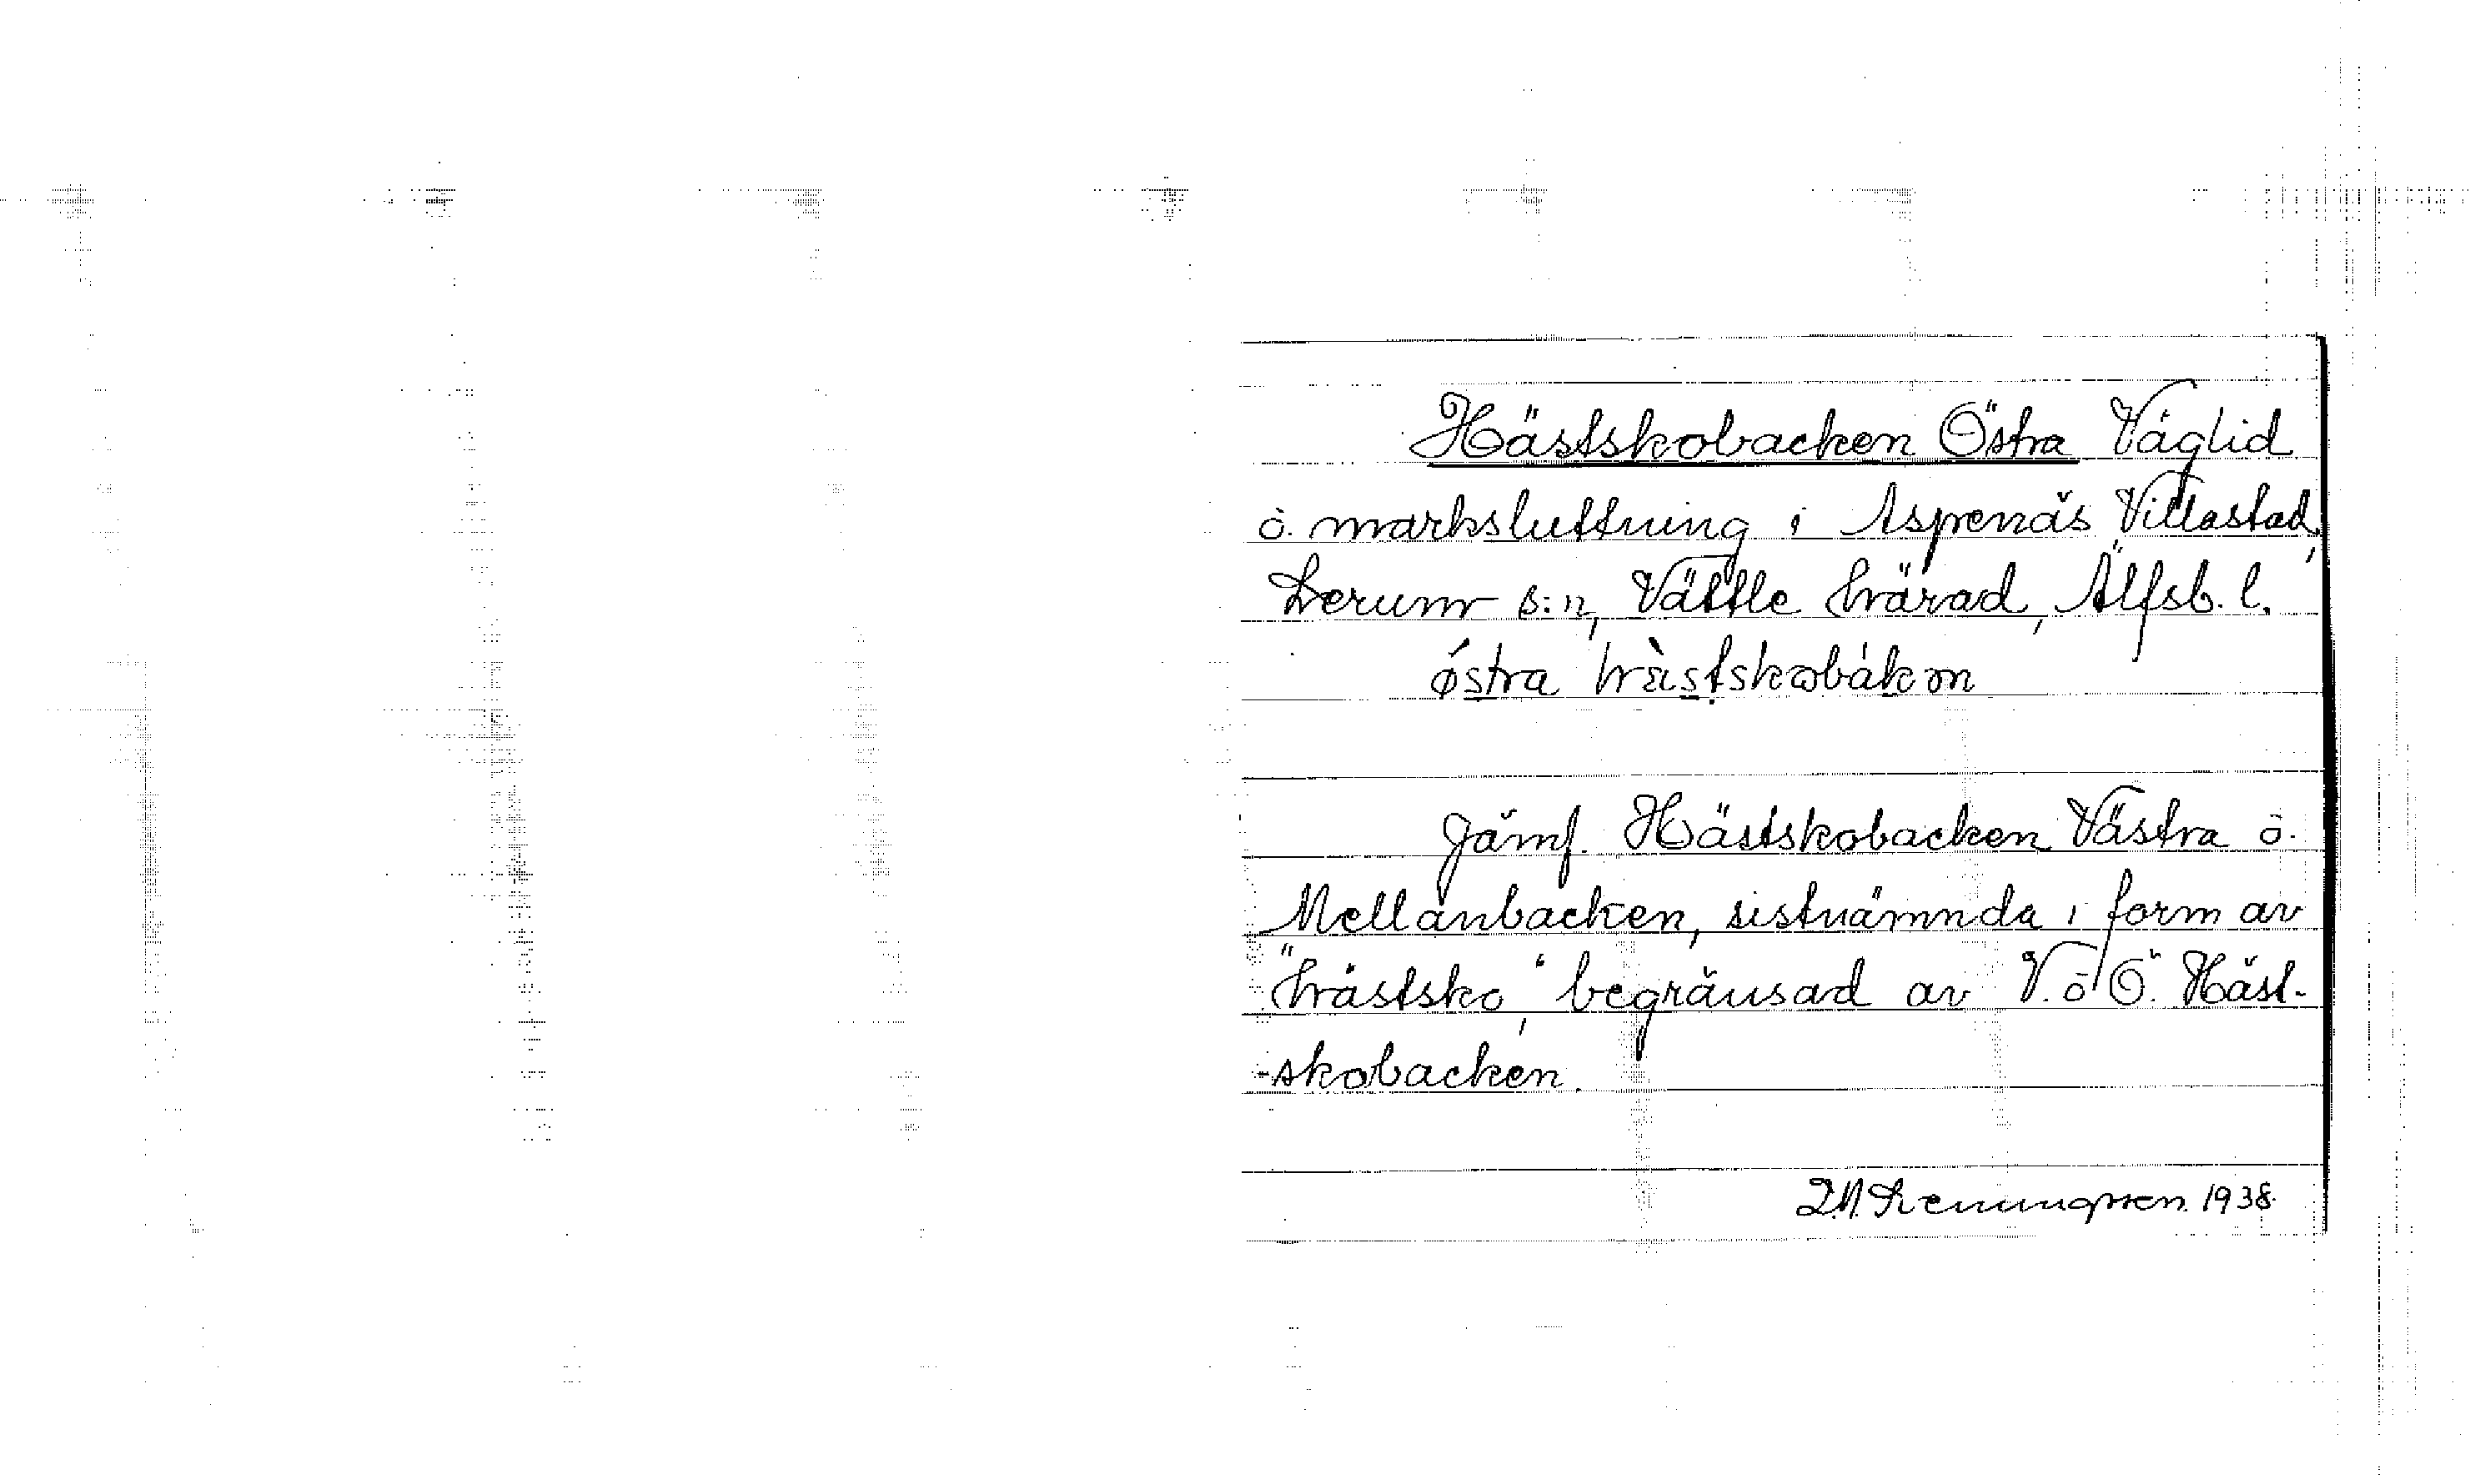 Hästskobacken Östra Väglid
o. marksluttning i Aspenäs Villastad,
Lerum s:n, Vättle härad, Älfsb. l.
östra hästskobakən
Jämf. Hästskobacken Västra o.
Mellanbacken, sistnämnda i form av
"hästsko", begränsad av V. o Ö. Häst-
-skobacken.
1938.